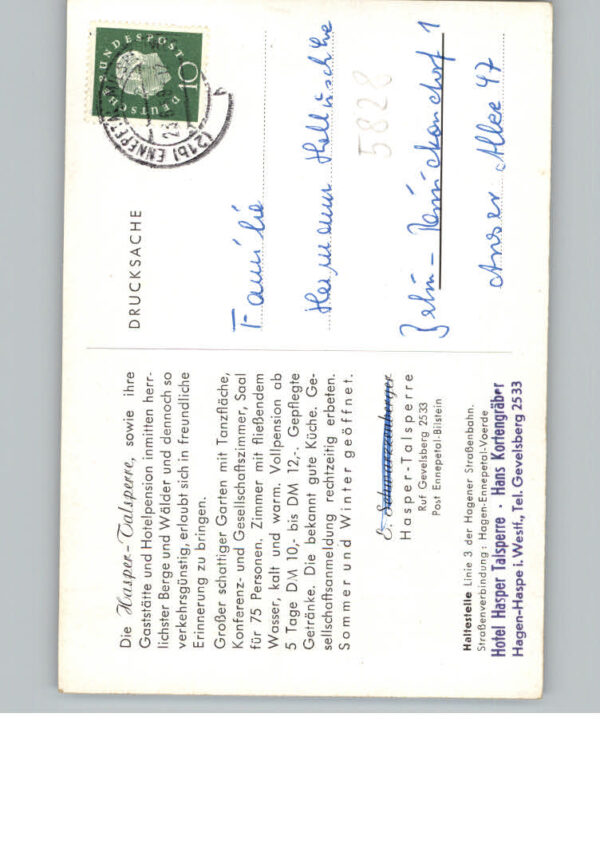 Die Hasper-Talsperre, sowie ihre
Gaststätte und Hotelpension inmitten herr-
lichster Berge und Wälder und dennoch so
verkehrsgünstig, erlaubt sich in freundliche
Erinnerung zu bringen.
Großer schattiger Garten mit Tanzfläche,
Konferenz- und Gesellschaftszimmer, Saal
für 75 Personen. Zimmer mit fließendem
Wasser, kalt und warm. Vollpension ab
5 Tage DM 10,- bis DM 12,-. Gepflegte
Getränke. Die bekannt gute Küche. Ge-
sellschaftsanmeldung rechtzeitig erbeten.
Sommer und Winter geöffnet.
Hasper-Talsperre
Ruf Gevelsberg 2533
Post Ennepetal-Bilstein
Haltestelle Linie 3 der Hagener Straßenbahn.
Straßenverbindung: Hagen-Ennepetal-Voerde
Hotel Hasper Talsperre · Hans Kortengräber
Hagen-Haspe i. Westf., Tel. Gevelsberg 2533
DEUTSCHE BUNDESPOST
10
(21b) ENNEPETAL
DRUCKSACHE
Familie
Hermann
5828
1
Allee 47